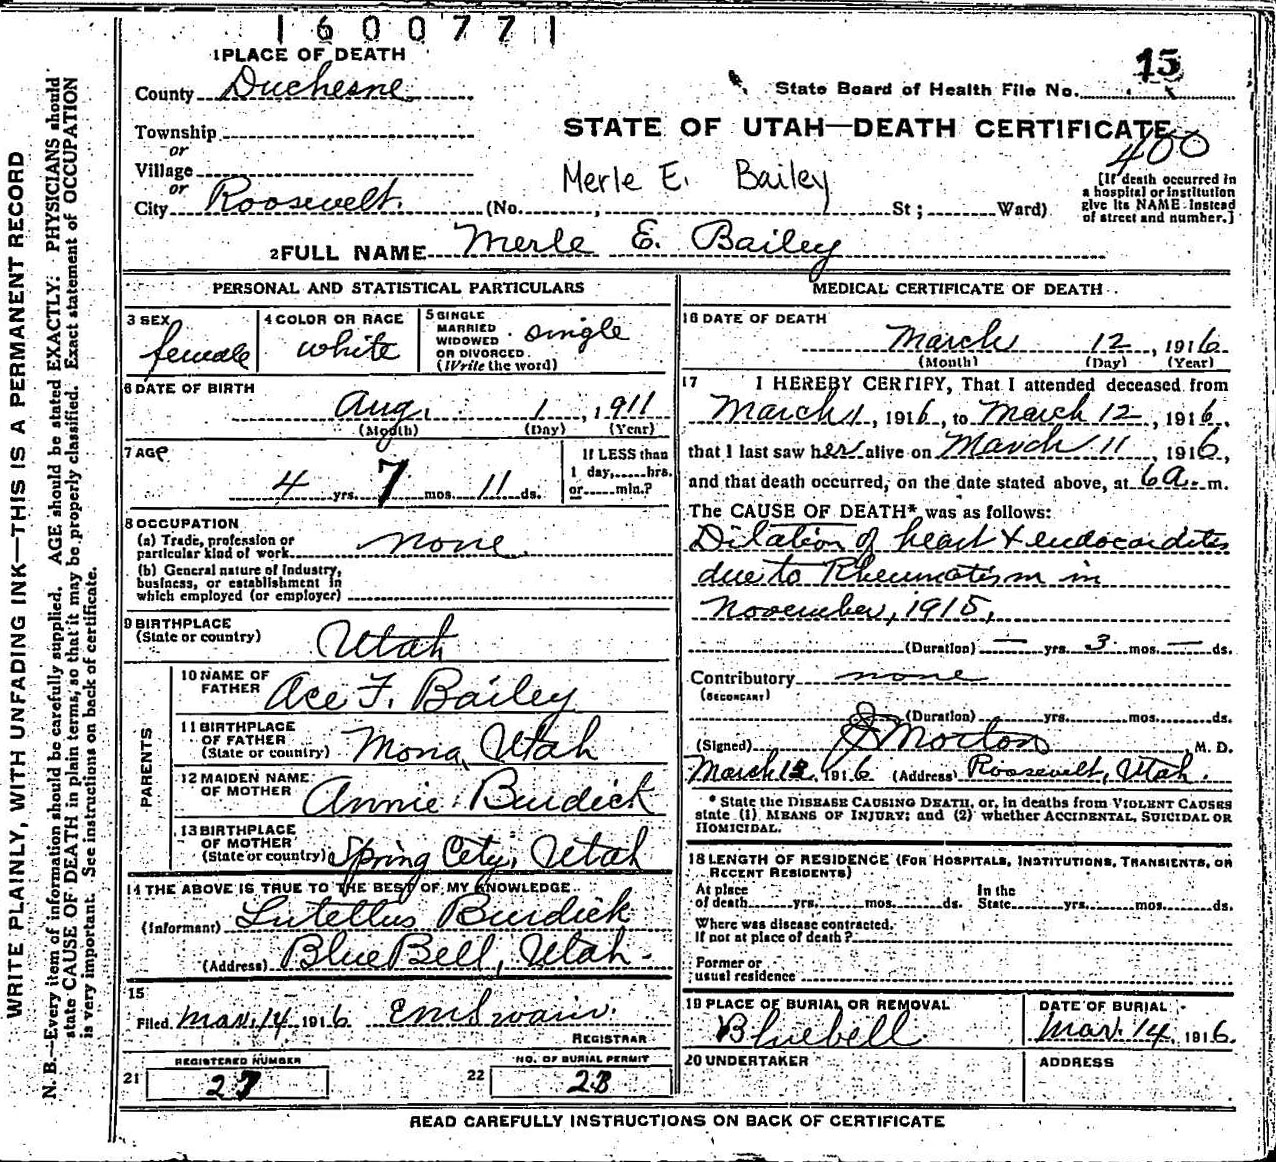 1600771
1 PLACE OF DEATH
15
County Duchesne
State Board of Health File No.
Township
STATE OF UTAH—DEATH CERTIFICATE
or
400
Village
Merle E. Bailey
or
City Roosevelt. (No. , St ; Ward)
[If death occurred in
a hospital or institution
give its NAME instead
of street and number.]
2 FULL NAME Merle E. Bailey
PERSONAL AND STATISTICAL PARTICULARS
3 SEX female
4 COLOR OR RACE white
5 SINGLE
MARRIED
WIDOWED
OR DIVORCED
(Write the word)
single
6 DATE OF BIRTH
Aug. 1, 1911
(Month) (Day) (Year)
7 AGE
4 yrs. 7 mos. 11 ds.
If LESS than
1 day, hrs.
or min.?
8 OCCUPATION
(a) Trade, profession or
particular kind of work none
(b) General nature of Industry,
business, or establishment in
which employed (or employer)
9 BIRTHPLACE
(State or country) Utah
PARENTS
10 NAME OF
FATHER Ace F. Bailey
11 BIRTHPLACE
OF FATHER
(State or country) Mona, Utah
12 MAIDEN NAME
OF MOTHER Annie Burdick
13 BIRTHPLACE
OF MOTHER
(State or country) Spring City, Utah
14 THE ABOVE IS TRUE TO THE BEST OF MY KNOWLEDGE
(Informant) Lutellus Burdick
(Address) BlueBell, Utah.
15
Filed Mar. 14 1916 E M Swain
REGISTRAR
REGISTERED NUMBER
21 27
NO. OF BURIAL PERMIT
22 23
MEDICAL CERTIFICATE OF DEATH
16 DATE OF DEATH
March 12, 1916
(Month) (Day) (Year)
17 I HEREBY CERTIFY, That I attended deceased from
March 1, 1916, to March 12, 1916,
that I last saw her alive on March 11, 1916,
and that death occurred, on the date stated above, at 6 a. m.
The CAUSE OF DEATH* was as follows:
Dilation of heart & endocardites
due to Rheumatism in
November, 1915,
(Duration) — yrs. 3 mos. — ds.
Contributory none
(SECONDARY)
(Duration) yrs. mos. ds.
(Signed) J Morton, M. D.
March 12, 1916 (Address) Roosevelt, Utah.
* State the DISEASE CAUSING DEATH, or, in deaths from VIOLENT CAUSES
state (1) MEANS OF INJURY; and (2) whether ACCIDENTAL, SUICIDAL OR
HOMICIDAL.
18 LENGTH OF RESIDENCE (FOR HOSPITALS, INSTITUTIONS, TRANSIENTS, OR
RECENT RESIDENTS)
At place
of death yrs. mos. ds.
In the
State yrs. mos. ds.
Where was disease contracted,
If not at place of death?
Former or
usual residence
19 PLACE OF BURIAL OR REMOVAL
Bluebell
DATE OF BURIAL
Mar. 14, 1916.
20 UNDERTAKER
ADDRESS
READ CAREFULLY INSTRUCTIONS ON BACK OF CERTIFICATE
WRITE PLAINLY, WITH UNFADING INK—THIS IS A PERMANENT RECORD
N. B.—Every item of information should be carefully supplied. AGE should be stated EXACTLY. PHYSICIANS should
state CAUSE OF DEATH in plain terms, so that it may be properly classified. Exact statement of OCCUPATION
is very important. See instructions on back of certificate.